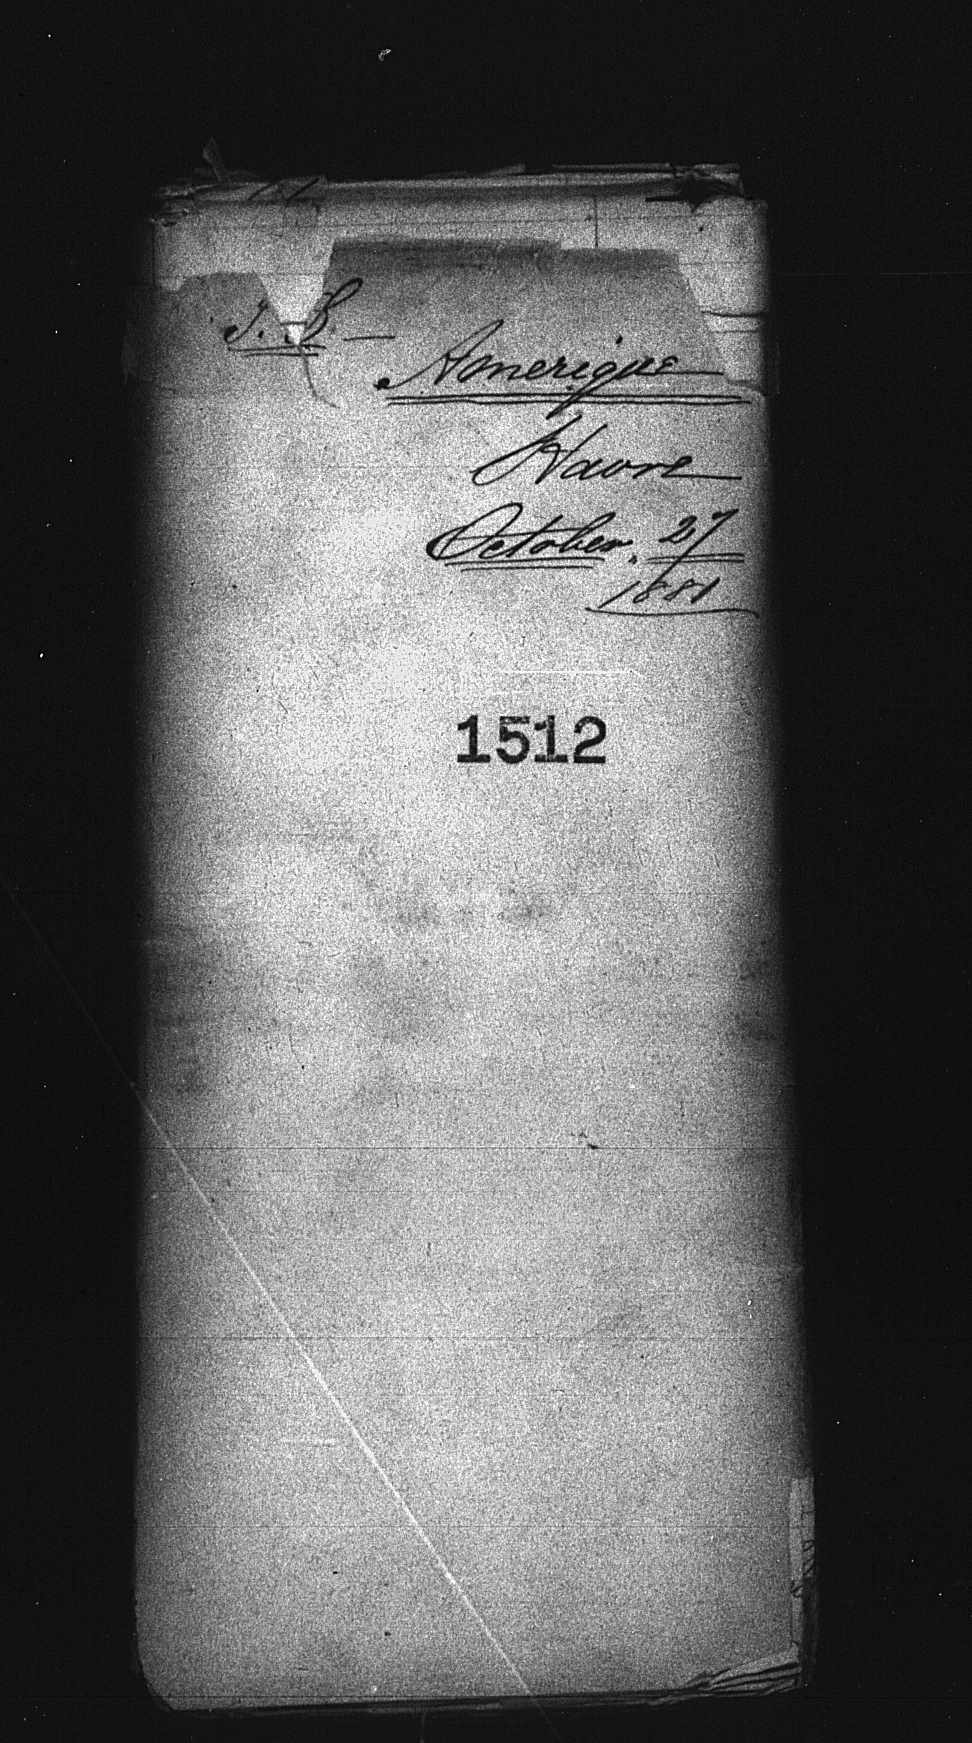 S. S —
Amerique
Havre
October. 27
1881
1512